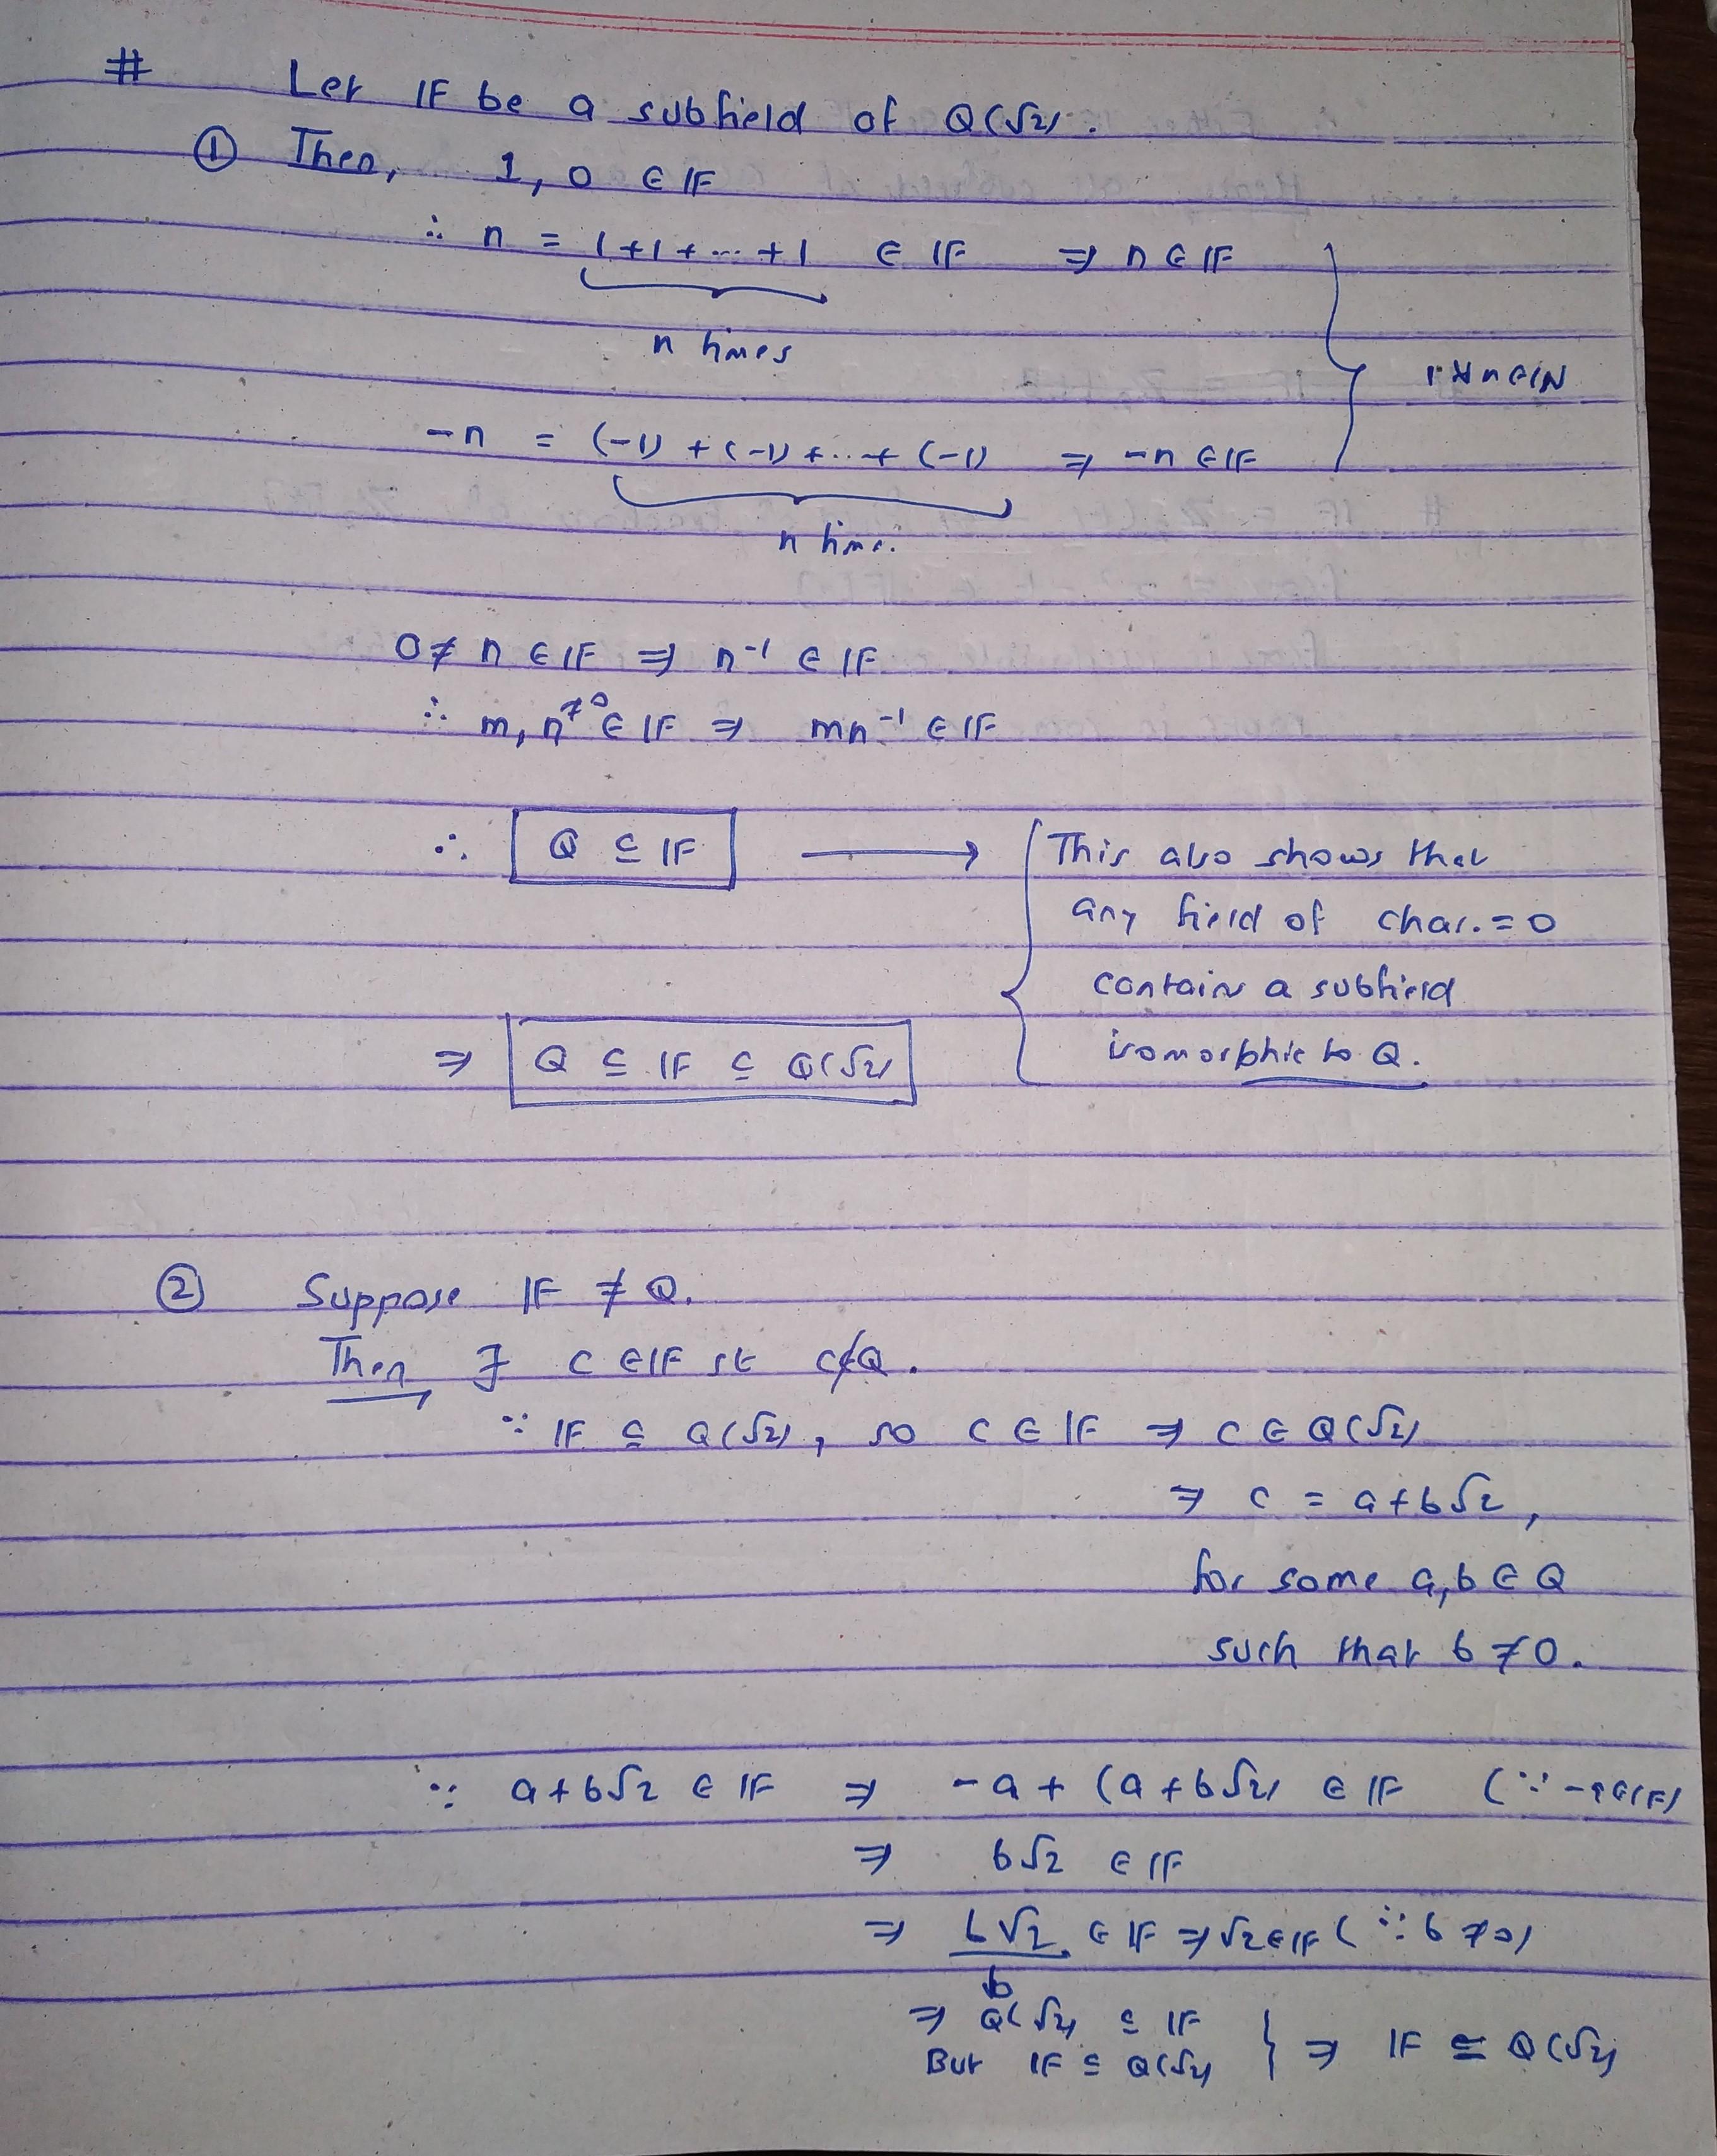 # Let IF be a subfield of Q(√2).
① Then, 1, 0 ∈ IF
∴ n = 1+1+...+1 ∈ IF ⇒ n ∈ IF
n times
∀ n ∈ IN
-n = (-1) + (-1) + ... + (-1) ⇒ -n ∈ IF
n time.
0 ≠ n ∈ IF ⇒ n⁻¹ ∈ IF
∴ m, n ≠0 ∈ IF ⇒ mn⁻¹ ∈ IF
∴ Q ⊆ IF → This also shows that
any field of char. = 0
contain a subfield
isomorphic to Q.
⇒ Q ⊆ IF ⊆ Q(√2)
② Suppose IF ≠ Q.
Then ∃ c ∈ IF st c ∉ Q.
∵ IF ⊆ Q(√2), so c ∈ IF ⇒ c ∈ Q(√2)
⇒ c = a+b√2,
for some a, b ∈ Q
such that b ≠ 0.
∵ a+b√2 ∈ IF ⇒ -a + (a+b√2) ∈ IF (∵ -a ∈ IF)
⇒ b√2 ∈ IF
⇒ b√2/b ∈ IF ⇒ √2 ∈ IF (∵ b ≠ 0)
⇒ Q(√2) ⊆ IF
But IF ⊆ Q(√2) } ⇒ IF = Q(√2)